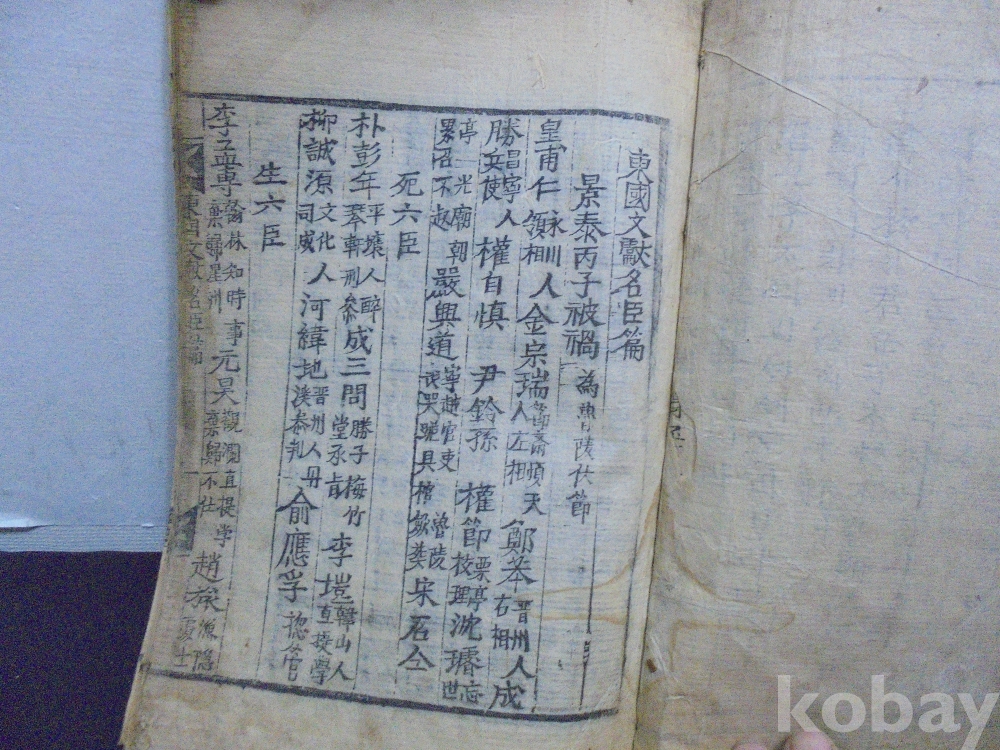 東國文獻名臣篇
景泰丙子被禍 為魯陵伏節
皇甫仁 永川人 領相 金宗瑞 節齋 順天人 左相 鄭苯 晋州人 右相 成
勝 昌寧人 兵使 權自愼 尹鈴孫 權節 栗亭 校理 沈璿 忘世
亭 光廟朝累召不起 嚴興道 寧越官吏 魯陵喪哭臨具棺斂葬 宋石仝
死六臣
朴彭年 平壤人 醉琴軒 刑參 成三問 勝子 梅竹堂 承旨 李塏 韓山人 直提學
柳誠源 文化人 司成 河緯地 晋州人 丹溪 泰判 俞應孚 摠管
生六臣
李孟專 翰林 知時事 棄歸星州 元昊 觀瀾 直提學 棄歸不仕 趙旅 漁隱
東國文獻名臣篇
kobay